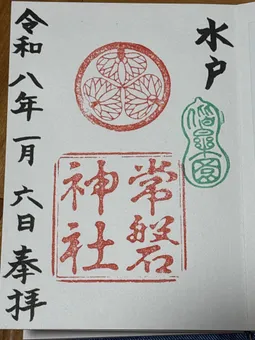 水戸
常磐
神社
令和八年一月六日奉拝